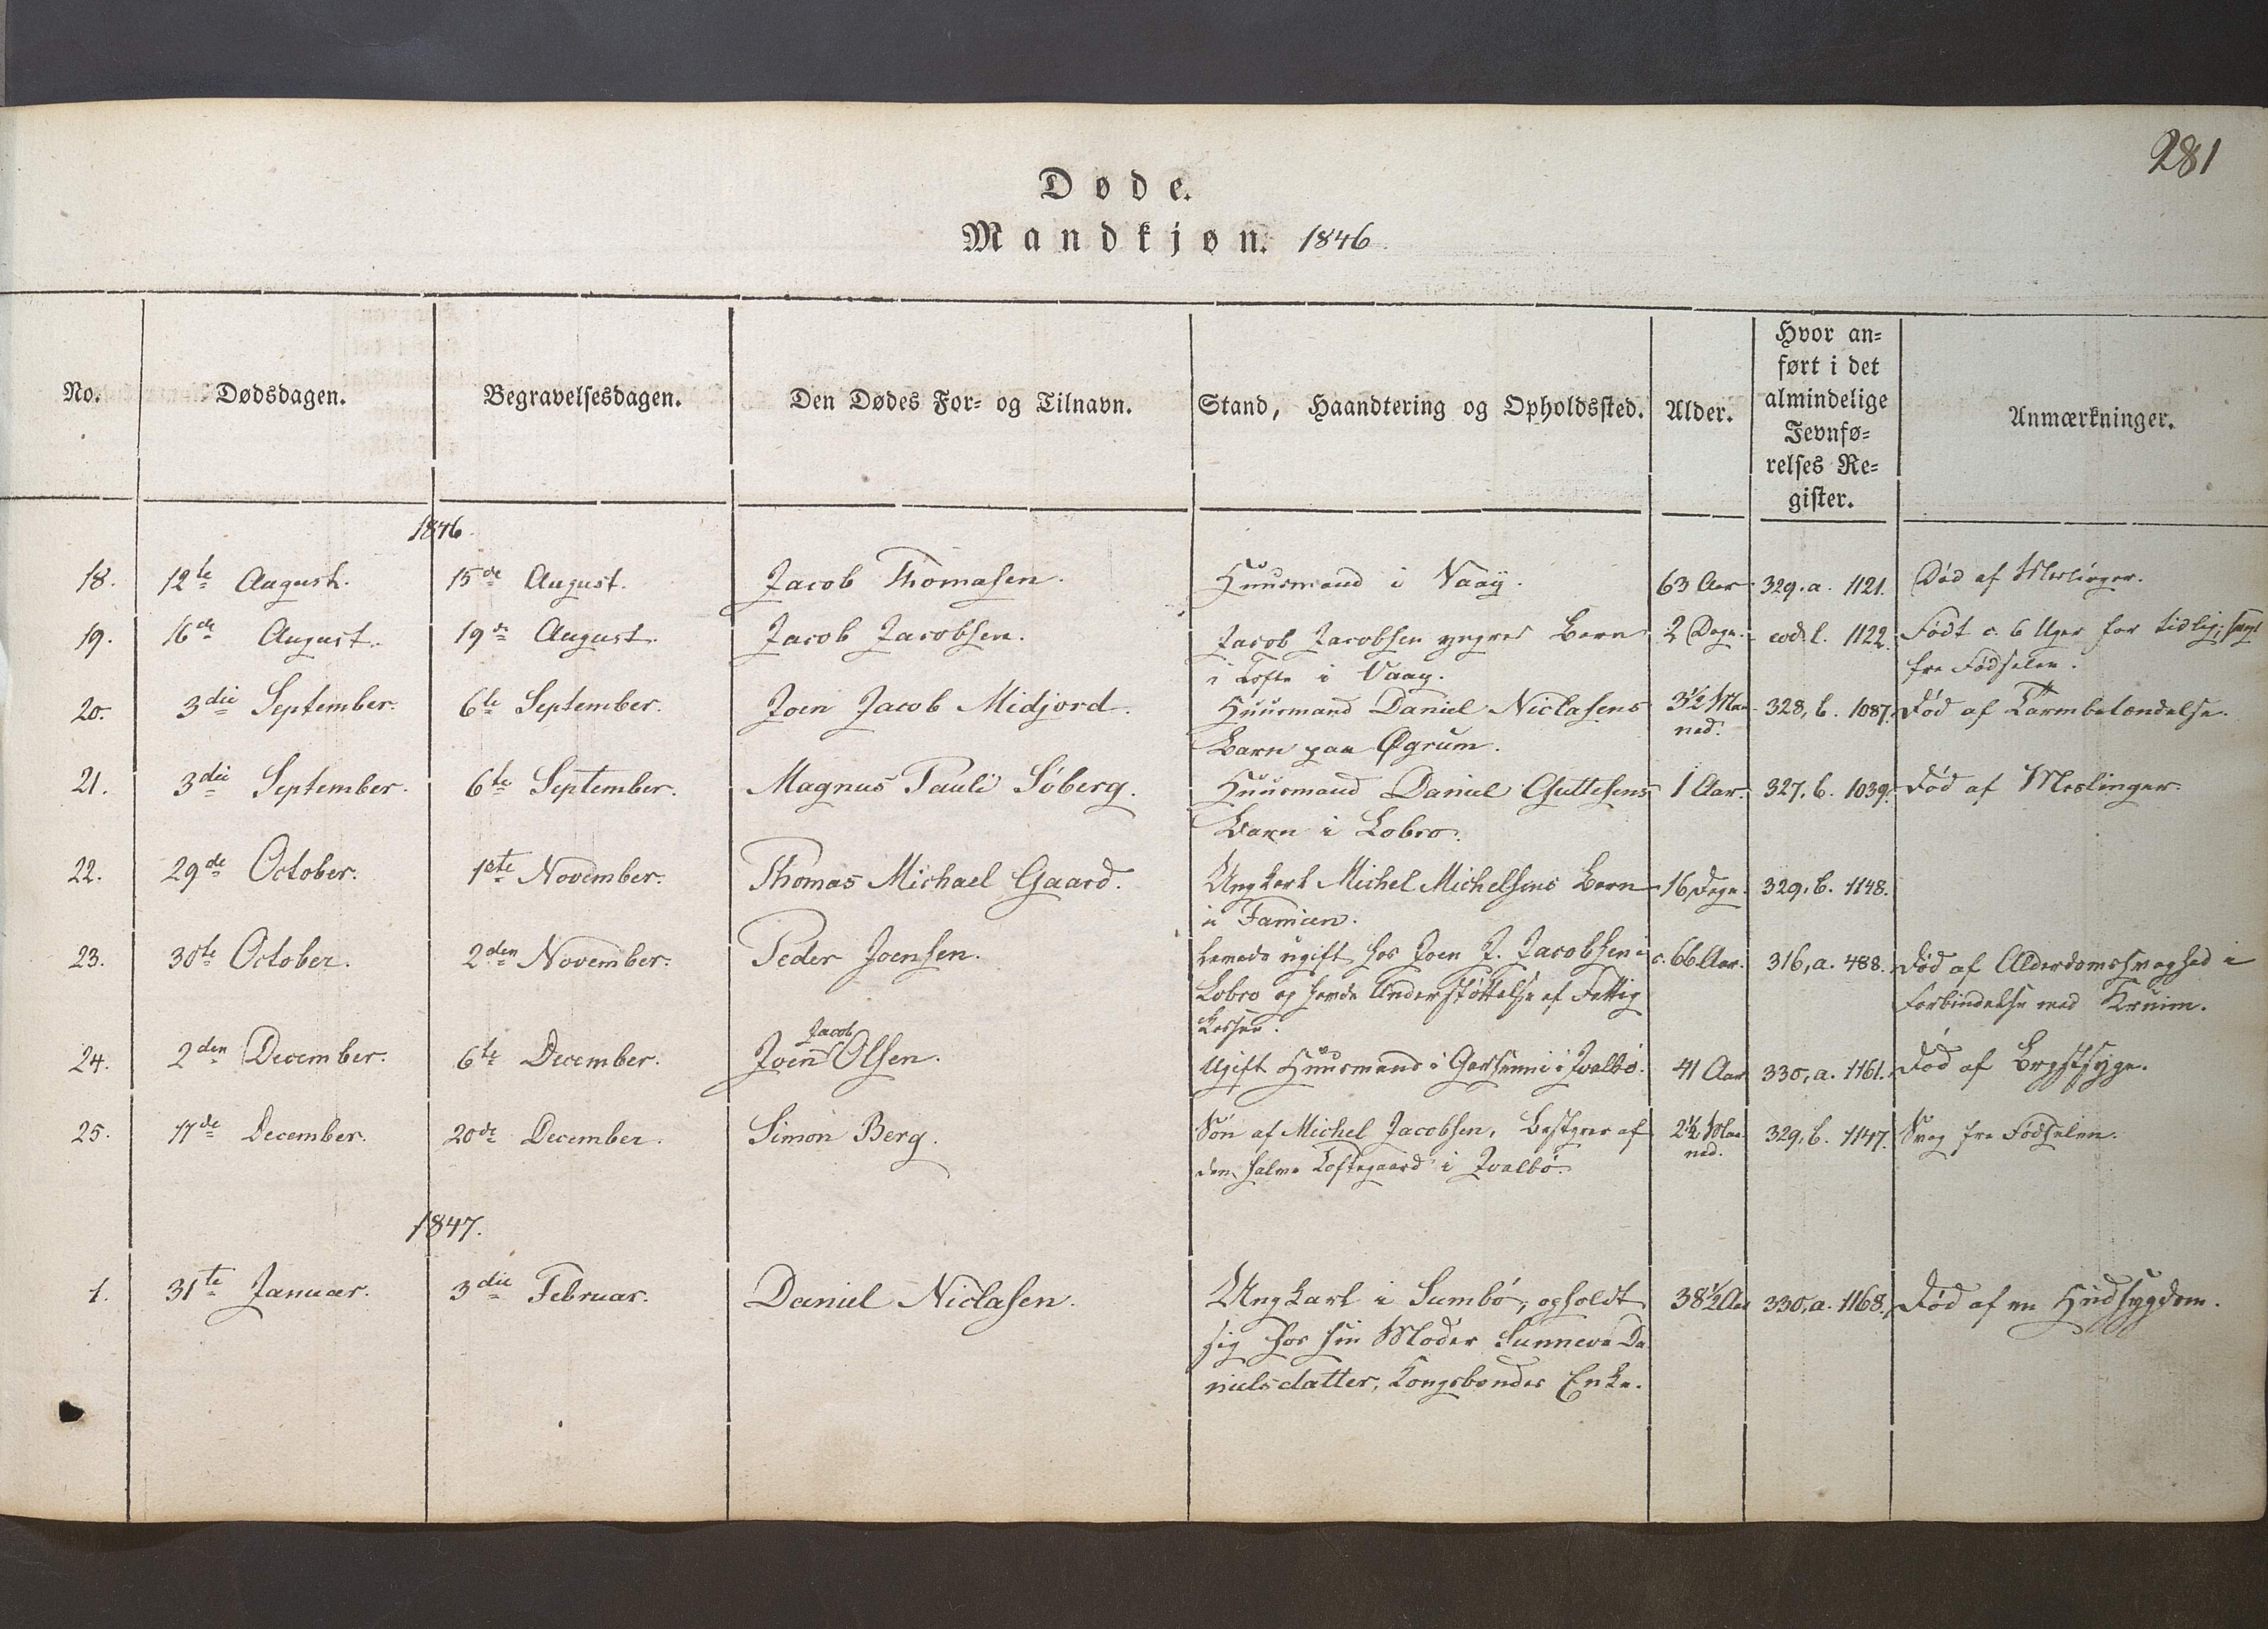 281
Døde.
Mandkjøn. 1846.
No. Dødsdagen. Begravelsesdagen. Den Dødes For- og Tilnavn. Stand, Haandtering og Opholdssted. Alder. Hvor an=
ført i det
almindelige
Jevnfø=
relses Re=
gister. Anmærkninger.
1846.
18. 12te August. 15de August. Jacob Thomasen. Huusmand i Vaag. 63 Aar 329. a. 1121. Død af Meslinger.
19. 16de August. 19de August. Jacob Jacobsen. Jacob Jacobsen yngres Barn 2 Dage. eod. l. 1122. Født c. 6 Uger for tidlig; svag
i Tofte i Vaag. fra Fødselen.
20. 3die September. 6te September. Joen Jacob Midjord. Huusmand Daniel Niclasens 3½ Maa 328, b. 1087. Død af Tarmbetændelse.
Barn paa Øgrum. ned.
21. 3die September. 6te September. Magnus Pauli Søberg. Huusmand Daniel Guttesens 1 Aar. 327. b. 1039. Død af Meslinger.
Barn i Lobro.
22. 29de October. 1ste November. Thomas Michael Gaard. Ungkarl Michel Michelsens Barn 16 Dage. 329. b. 1148.
i Famien.
23. 30te October. 2den November. Peder Joensen. Levede ugift hos Joen J. Jacobsen i c. 66 Aar. 316, a. 488. Død af Alderdomssvaghed i
Lobro og havde Understøttelse af Fattig Forbindelse med Kruim.
kassen.
24. 2den December. 6te December. Joen Jacob Olsen. Ugift Huusmand i Gershenni i Qvalbø. 41 Aar 330, a. 1161. Død af Brystsyge.
25. 17de December. 20de December. Simon Berg. Søn af Michel Jacobsen, Bestyrer af 2½ Maa 329. b. 1147. Svag fra Fødselen.
den halve Toftegaard i Qvalbø. ned.
1847.
1. 31te Januar. 3die Februar. Daniel Niclasen. Ungkarl i Sumbø, opholdt 38½ Aar 330, a. 1168. Død af en Hudsygdom.
sig hos sin Moder Sunneva Da
nielsdatter, Kongsbondes Enke.